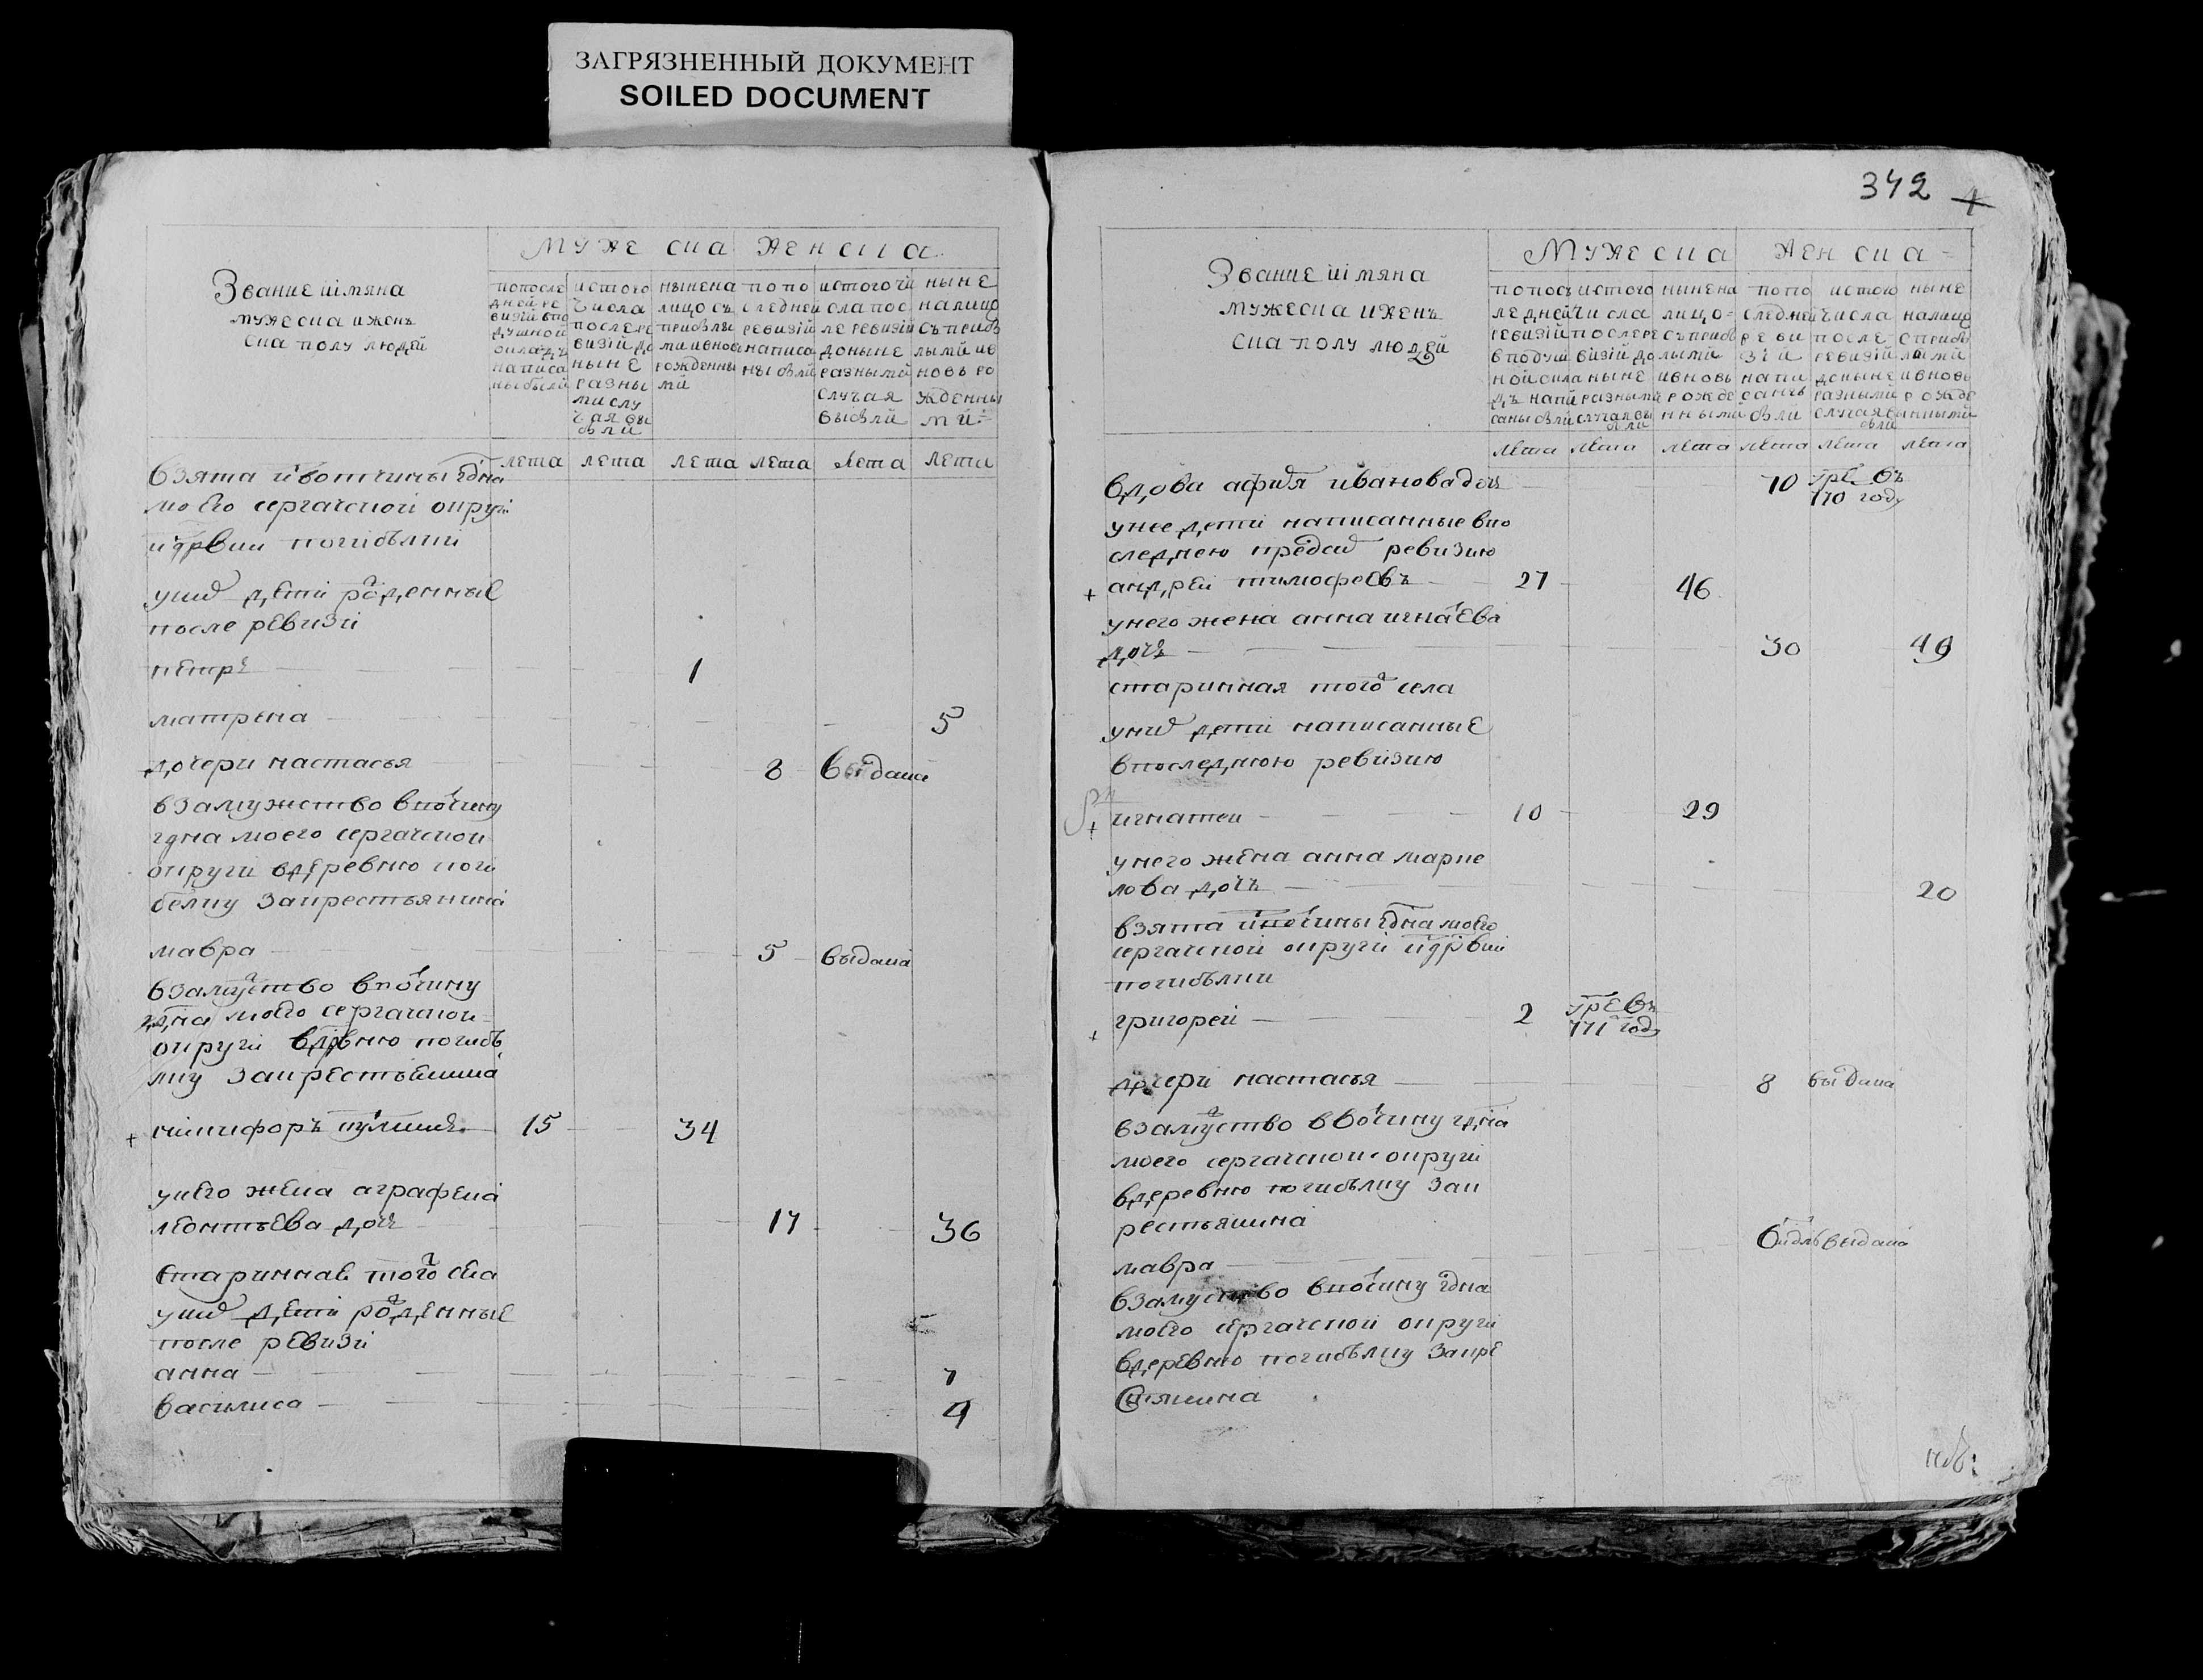 ЗАГРЯЗНЕННЫЙ ДОКУМЕНТ
SOILED DOCUMENT
мужеска женска
Звание иімяна
мужеска иженъ
ска полу людей
попосле
дней ре
визіи впо
душной
окладъ
написа
ны были
истого
числа
послере
визіи до
ныне
разны
мислу
чая вы
были
нынена
лицо съ
прибылы
ми ивновь
рожденны
ми
попо
следней
ревизіи
написа
ны были
истого чи
сла пос
ле ревизіи
доныне
разными
случая
выбыли
ныне
налицо
съ прибы
лыми ив
новь ро
жденны
ми
лета лета лета лета лета лета
взята извотчины гдна
моего сергачской округи
издрвни погибѣлки
уних дети рожденные
после ревизи
петръ 1
матрена 5
дочери настасья 8 выдана
взамужство ввотчину
гдна моего сергачской
округи вдеревню поги
белку закрестьянина
мавра 5 выдана
взамужство ввотчину
гдна моего сергачской
округи вдрвню погибѣ
лку закрестьянина
+ никифоръ 15 34
унего жена аграфена
леонтьева дочь 17 36
Стариннаѣ того села
уних дети рожденные
после ревизи
анна 7
василиса 4
342 4
Мужеска женска
Звание иімяна
мужеска иженъ
ска полу людей
попос
ледней
ревизіи
вподуш
ной окла
дъ напи
саны были
истого
числа
послере
визіи до
ныне
разными
случая вы
были
нынена
лицо
съприбы
лыми
ивновь
рожде
нными
попо
следней
реви
зіи
напи
саны
были
истого
числа
после
ревизіи
доныне
разными
случая вы
были
ныне
налицо
сприбы
лыми
ивновь
рожде
нными
лета лета лета лета лета лета
вдова афия ивановадочь 70 умре въ
770 году
унее дети написанные впо
следнею предсих ревизию
+ андрей тимофеевъ 27 46
унего жена анна игнатьева
дочь 30 49
старинная того села
уних дети написанные
впоследнюю ревизию
+ игнатей 10 29
унего жена анна марке
лова дочь 20
взята извотчины гдна моего
сергачской округи издрвни
погибѣлки
+ григорей 2 умре въ
771 году
дочери настасья 8 выдана
взамуство ввотчину гдна
моего сергачской округи
вдеревню погибѣлку зак
рестьянина
мавра 6 выдана
взамуство ввотчину гдна
моего сергачской округи
вдеревню погибѣлку закре
стьянина